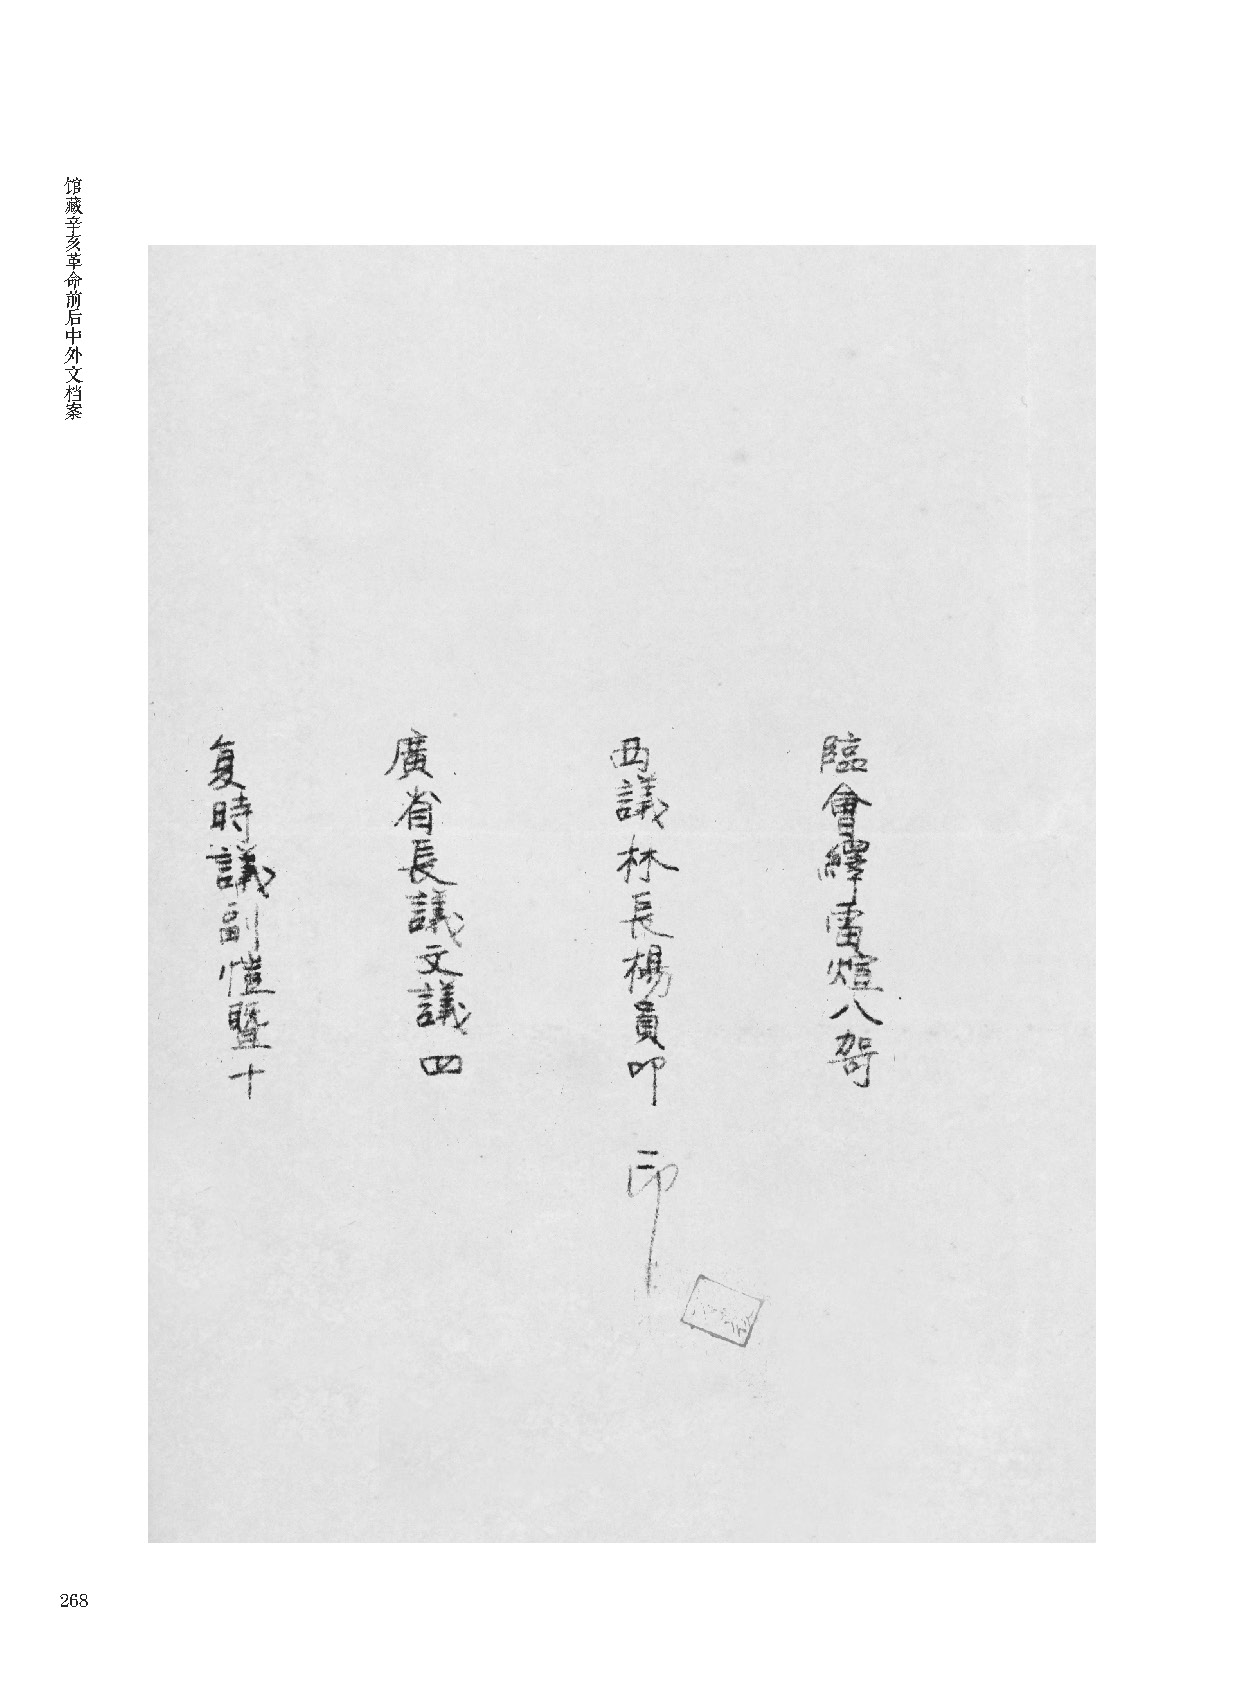 馆藏辛亥革命前后中外文档案
臨會繹電煊八哿
西議林長楊員叩 印
廣省長議文議四
复時議副愷暨十
268